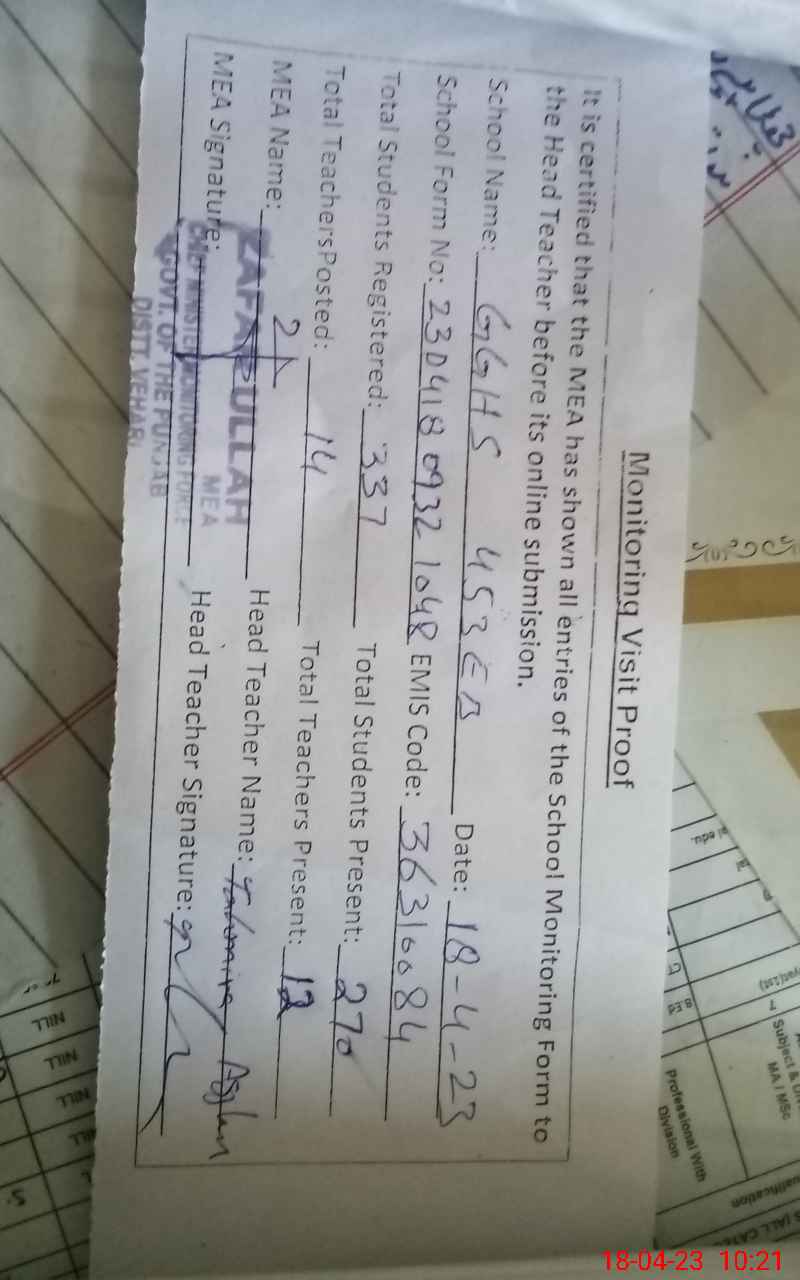 Monitoring Visit Proof
It is certified that the MEA has shown all entries of the School Monitoring Form to
the Head Teacher before its online submission.
School Name: GGHS 453 EB Date: 18-4-23
School Form No: 230418 0932 1048 EMIS Code: 36310084
Total Students Registered: 337 Total Students Present: 270
Total TeachersPosted: 14 Total Teachers Present: 12
MEA Name: ZAFARULLAH Head Teacher Name: Aslam
MEA
MEA Signature: Head Teacher Signature:
CHIEF MINISTER MONITORING FORCE
GOVT. OF THE PUNJAB
DISTT. VEHARI
Subject &
MA / MSc
Professional With
Division
B.Ed
CT
NILL
NILL
NILL
18-04-23 10:21